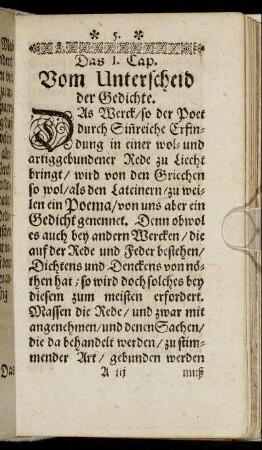 * 5. *
Das I. Cap.
Vom Unterscheid
der Gedichte.
DAs Werck/so der Poet
durch Siñreiche Erfin-
dung in einer wol- und
artiggebundener Rede zu Liecht
bringt/ wird von den Griechen
so wol/als den Lateinern/zu wei-
len ein Poema/von uns aber ein
Gedicht genennet. Denn obwol
es auch bey andern Wercken/die
auf der Rede und Feder bestehen/
Dichtens und Denckens von nö-
then hat; so wird doch solches bey
diesem zum meisten erfordert.
Massen die Rede/ und zwar mit
angenehmen/und denen Sachen/
die da behandelt werden/ zu stim-
mender Art/ gebunden werden
A iij muß